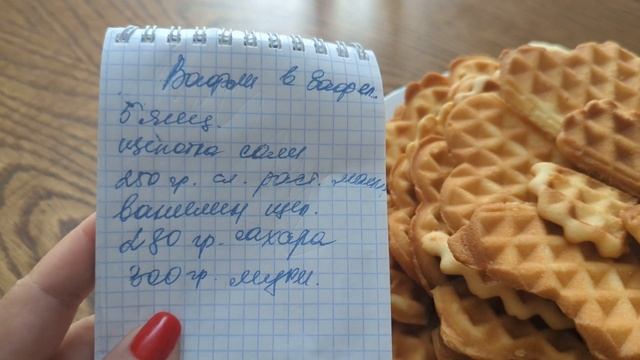 Вафли в вафел.
5 яиц.
щепотка соли
250 гр. сл. раст. масл,
ванилин щеп.
280 гр. сахара
300 гр. муки.